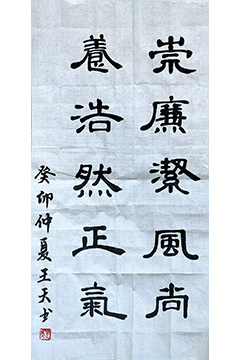 崇廉潔風尚
養浩然正氣
癸卯仲夏王天书